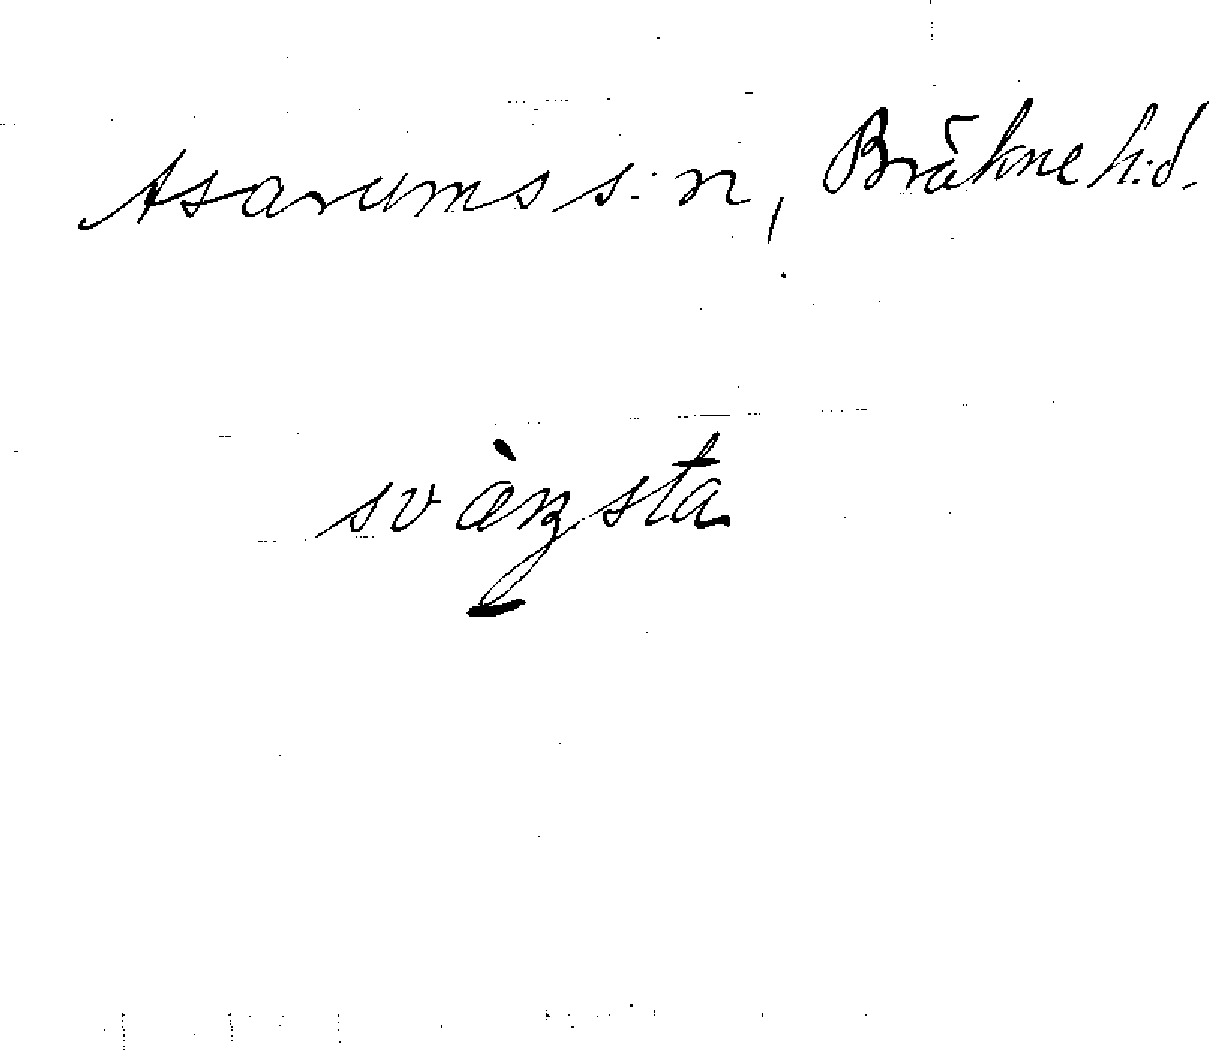 Asarums s:n, Bräkne h:d.
svàŋsta